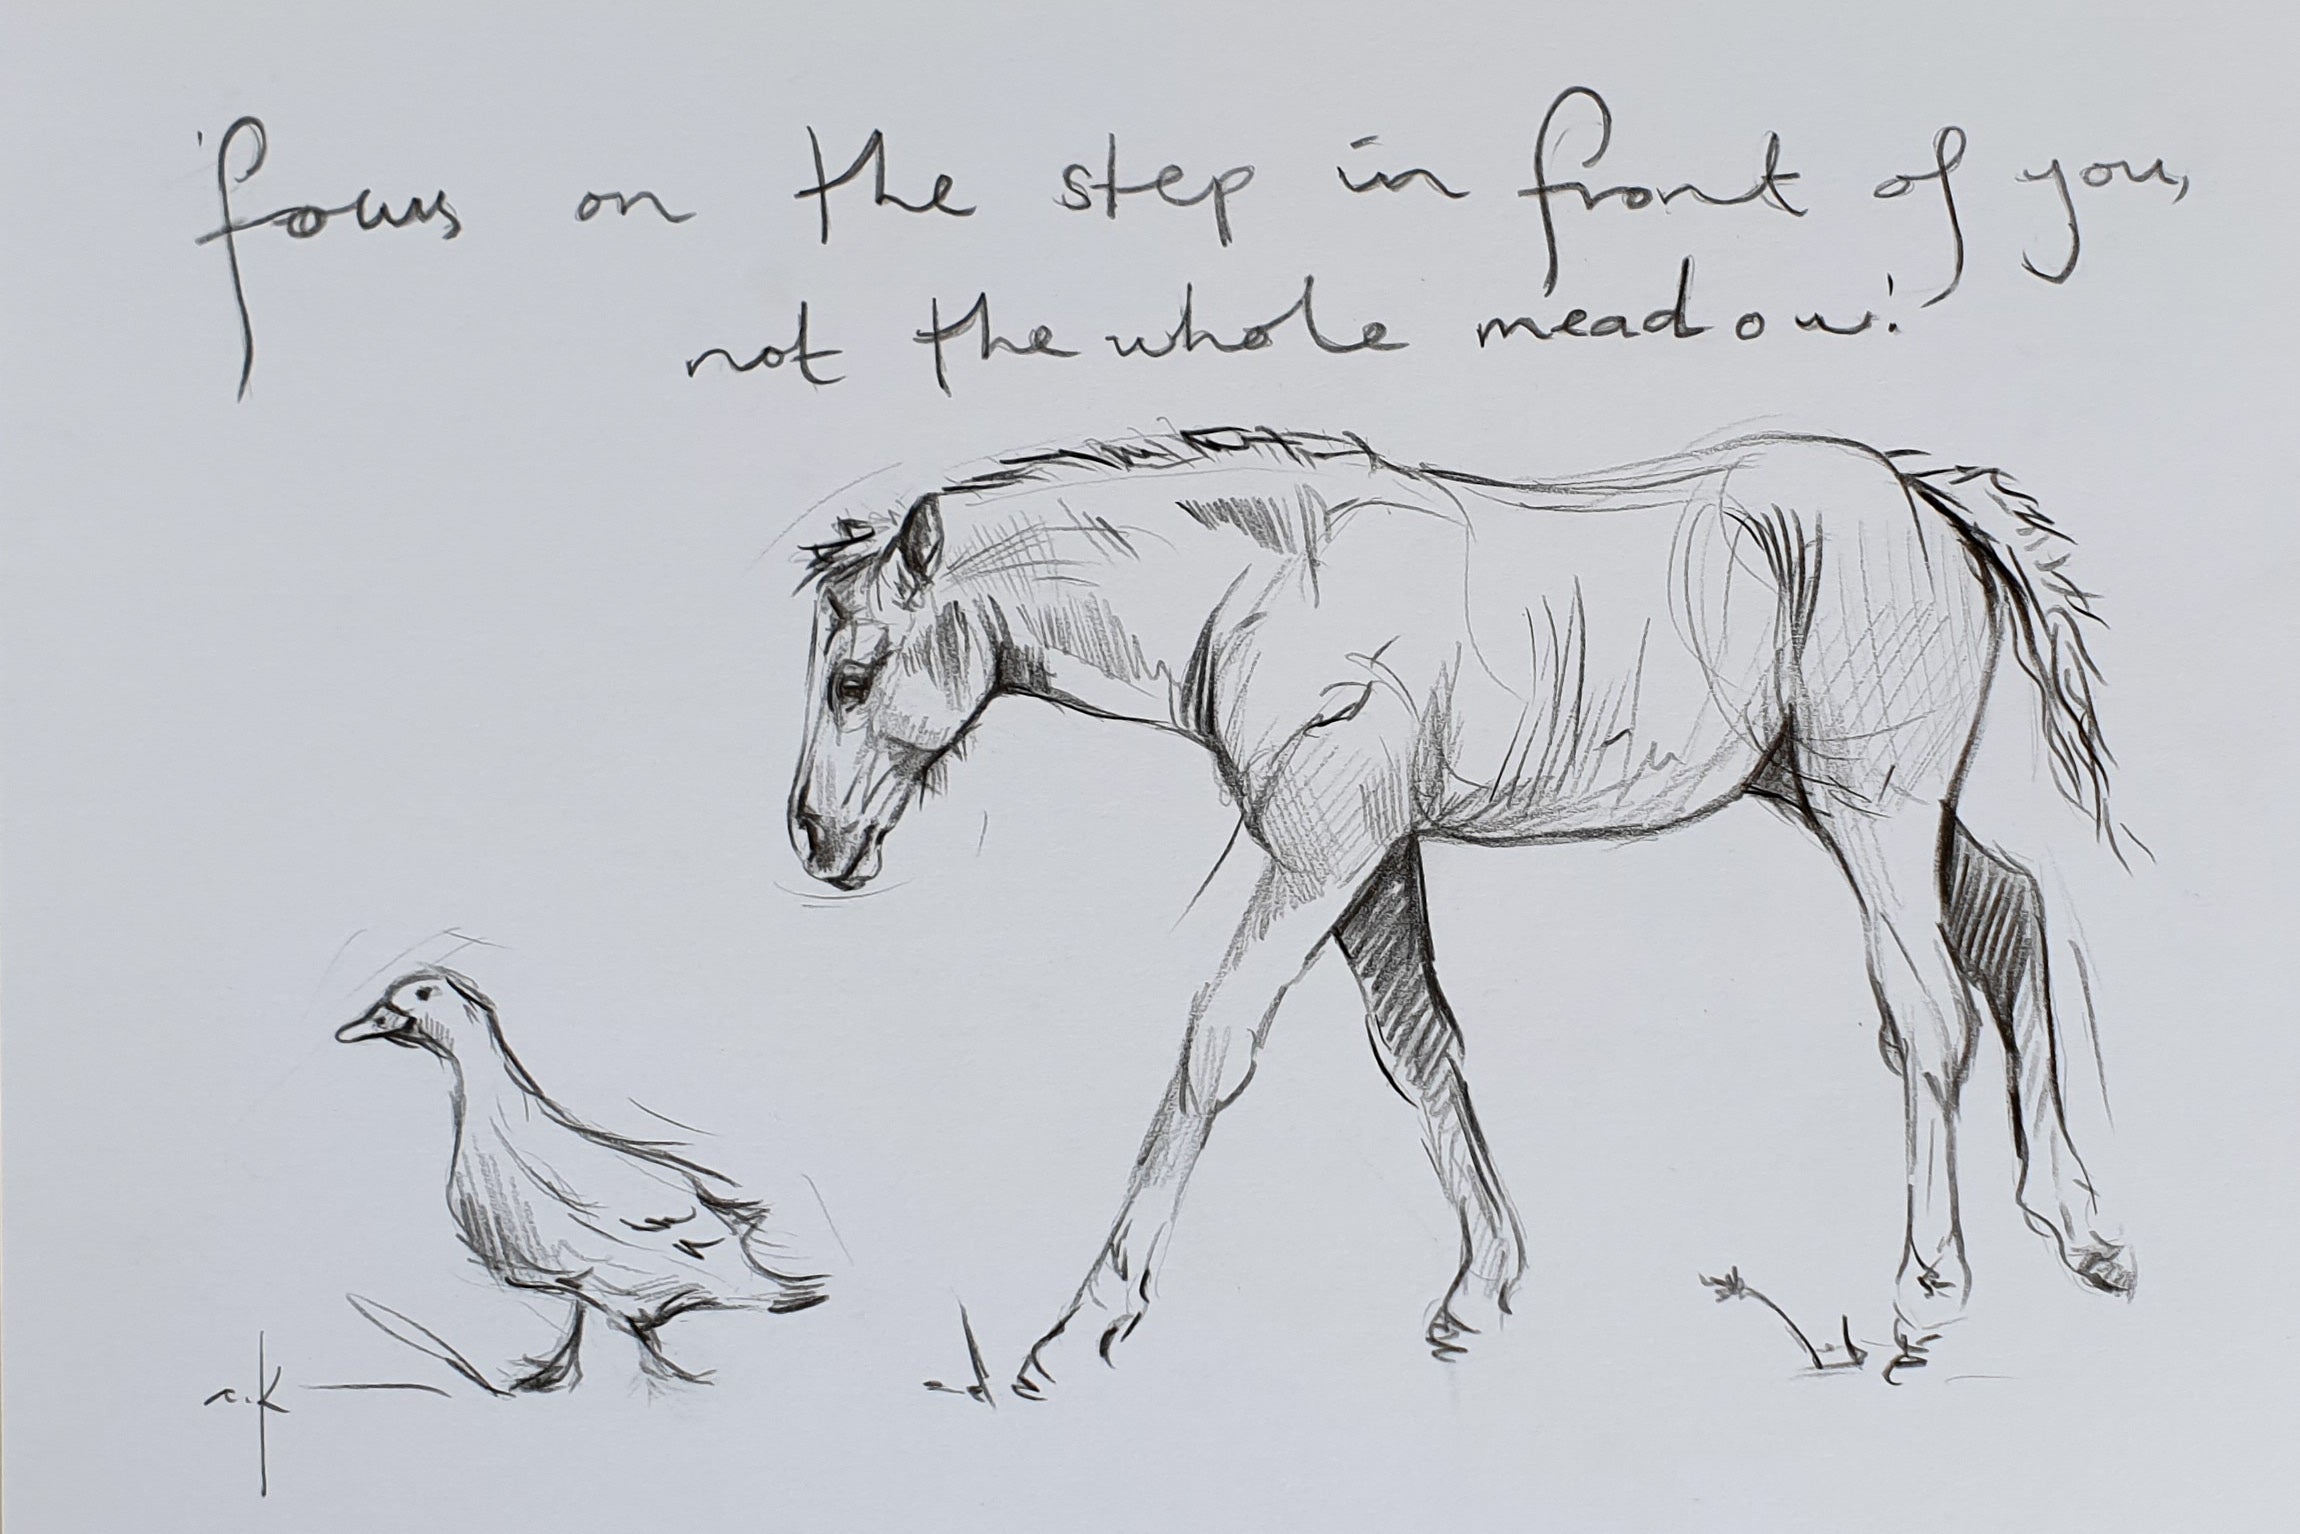 'focus on the step in front of you,
not the whole meadow.'
a.k